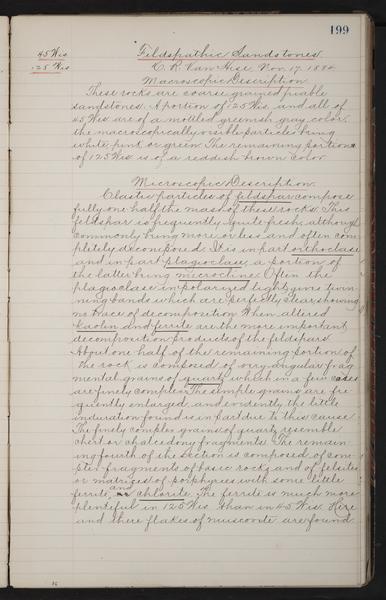 199
45 Wis Feldspathic Sandstones
125 Wis C. R. Van Hise. Nov. 17. 1884.
Macroscopic Description.
These rocks are coarse grained friable
sandstones. A portion of 125 Wis. and all of
45 Wis are of a mottled greenish gray color,
the macroscopically visible particles being
white, pink or green. The remaining portion
of 125 Wis is of a reddish brown color.
Microscopic Description.
Clastic particles of feldspar compose
fully one half the mass of these rocks. This
feldspar is frequently quite fresh, although
commonly being more or less and often com-
pletely decomposed. It is in part orthoclase
and in part plagioclase, a portion of
the latter being microcline. Often the
plagioclase in polarized light gives twin-
ning bands which are perfectly clear showing
no trace of decomposition. When altered
kaolin and ferrite are the more important
decomposition products of the feldspars.
About one half of the remaining portion of
the rock is composed of very angular frag
mental grains of quartz which in a few cases
are finely complex. The simple grains are fre
quently enlarged, and evidently the little
induration found is in part due to this cause.
The finely complex grains of quartz resemble
chert or chalcedony fragments. The remain
ing fourth of the section is composed of com-
plex fragments of basic rocks and of felsites
or matrices of porphyries with some little
ferrite, and chlorite. The ferrite is much more
plentiful in 125 Wis than in 45 Wis. Here
and there flakes of muscovite are found.